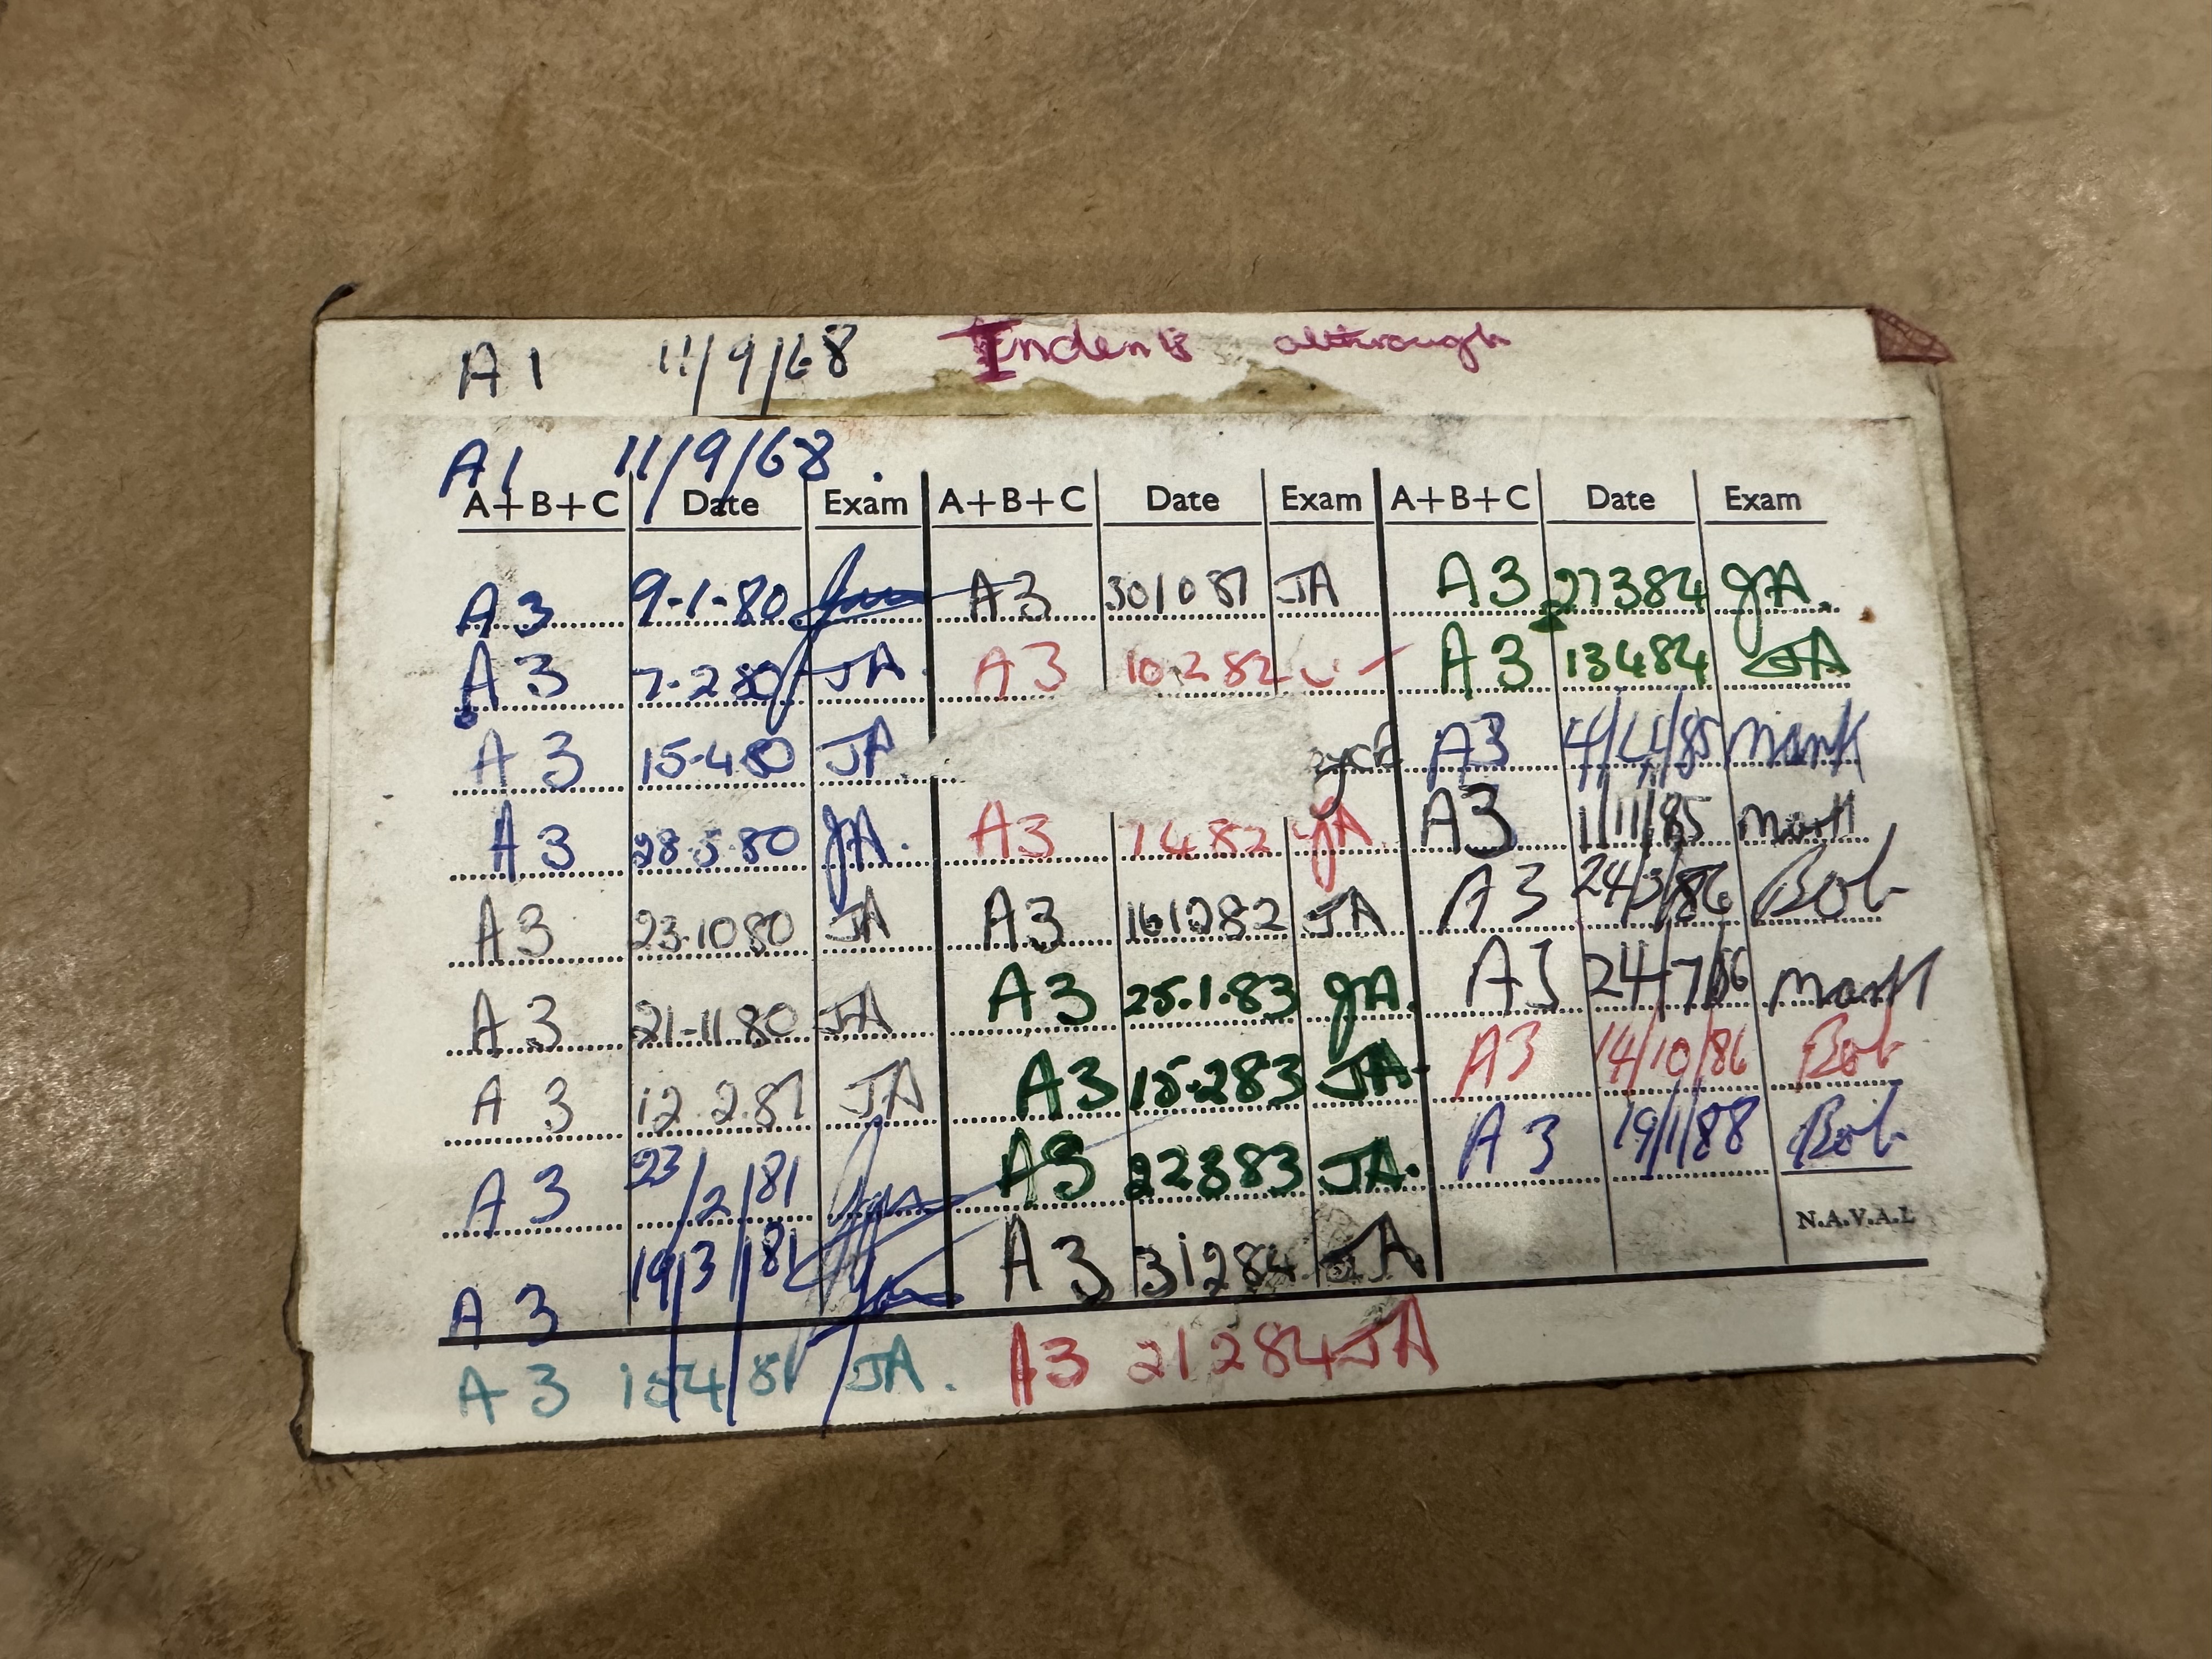 A1 11/9/68 althrough
A1 11/9/68
A+B+C Date Exam A+B+C Date Exam A+B+C Date Exam
A3 9-1-80 A3 301081 JA A3 27384 JA.
A3 7-280 JA. A3 10.282 A3 13484 JA
A3 15-480 JA. A3 4/4/85 Mark
A3 28.5.80 JA. A3 1482 JA. A3 1/11/85 Mark
A3 23.1080 JA A3 161282 JA A3 24/3/86 Bob
A3 21-11.80 JA A3 25.1.83 JA. A3 24/7/86 Mark
A3 12.2.81 JA A3 15.283 JA. A3 14/10/86 Bob
A3 23/2/81 A3 22383 JA. A3 19/1/88 Bob
N.A.V.A.L
A3 19/3/81 A3 31284 JA
A3 15481 JA. A3 21284 JA